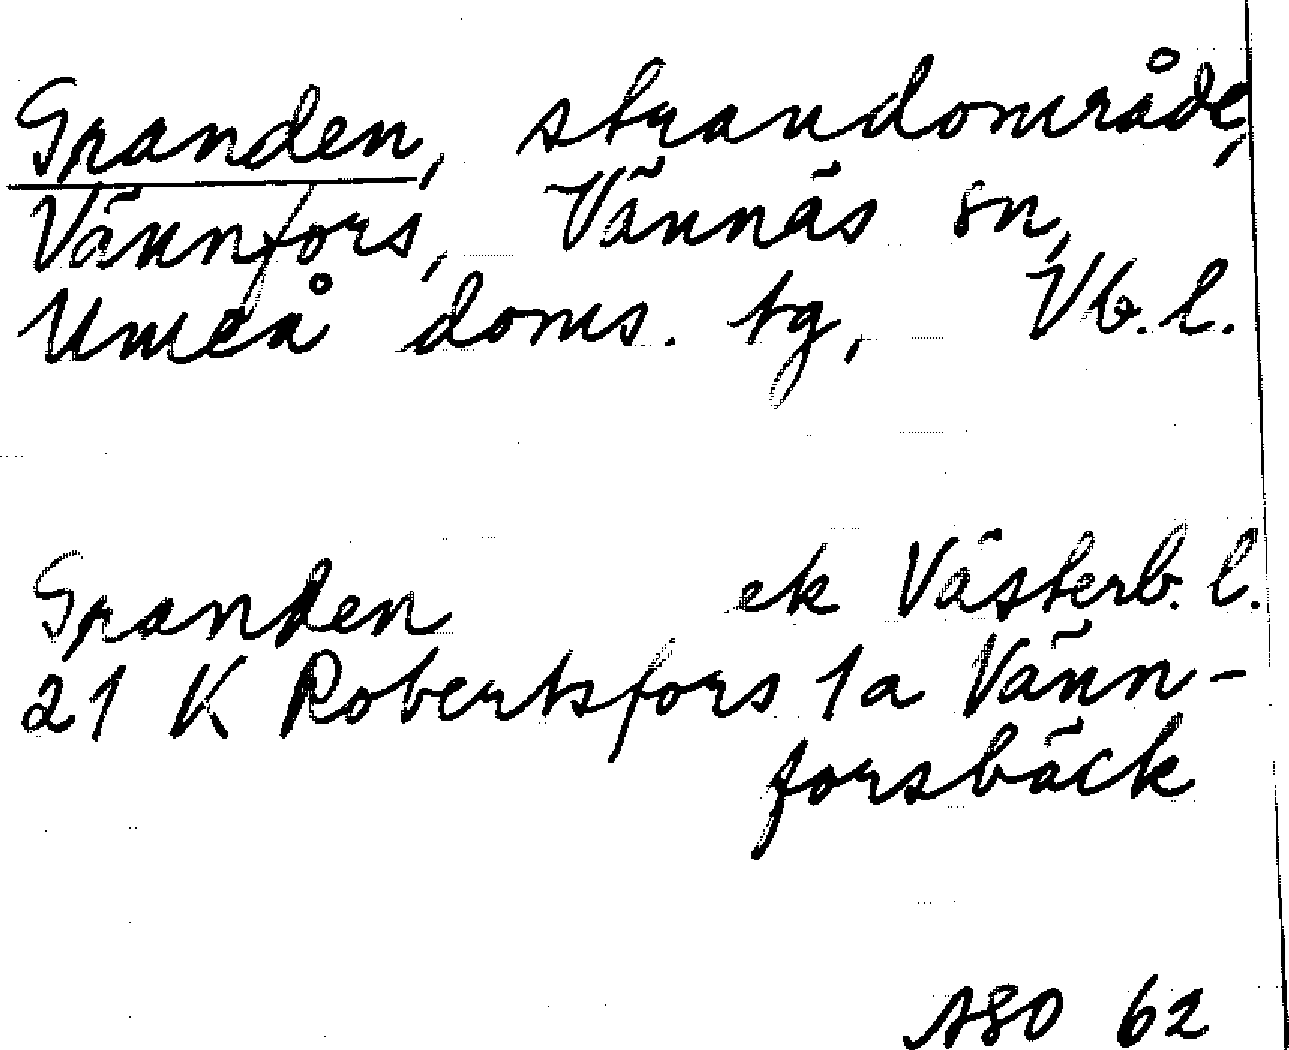 Granden, strandområde,
Vännfors, Vännäs sn,
Umeå doms. tg, Vb. l.
Granden ek Västerb. l.
21 K Robertsfors 1a Vänn-
forsbäck
ASO 62